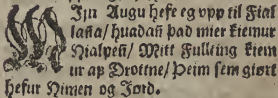 MIjn Augu hefe eg vpp til Fial
lasta/ huadañ þad mier kiemur
Hialpeñ/ Mitt Fulltíng kiem
ur ap Drottne/ Þeim sem giørt
hefur Himen og Jørd.